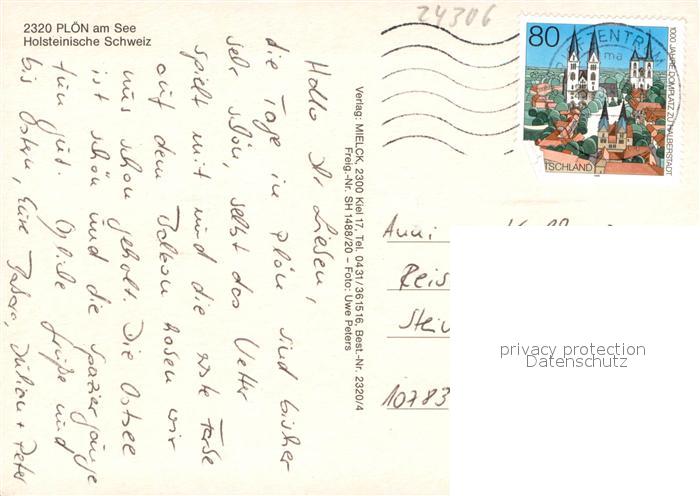 2320 PLÖN am See
Holsteinische Schweiz
24306
80
1000 JAHRE DOMPLATZ ZU HALBERSTADT
TSCHLAND
Verlag: MIELCK, 2300 Kiel 17, Tel. 0431/361516, Best.-Nr. 2320/4
Freig.-Nr. SH 1488/20 – Foto: Uwe Peters
Hallo Ihr Lieben,
die Tage in Plön sind bisher
sehr schön, selbst das Wetter
spielt mit und die erste
auf dem Balkon haben wir
uns schon geholt. Die Ostsee
ist schön und die Spaziergänge
tun gut. Liebe Grüße und
bis Ostern, Eure Julian + Peter
Anni
Reis
Stein
10783
privacy protection
Datenschutz